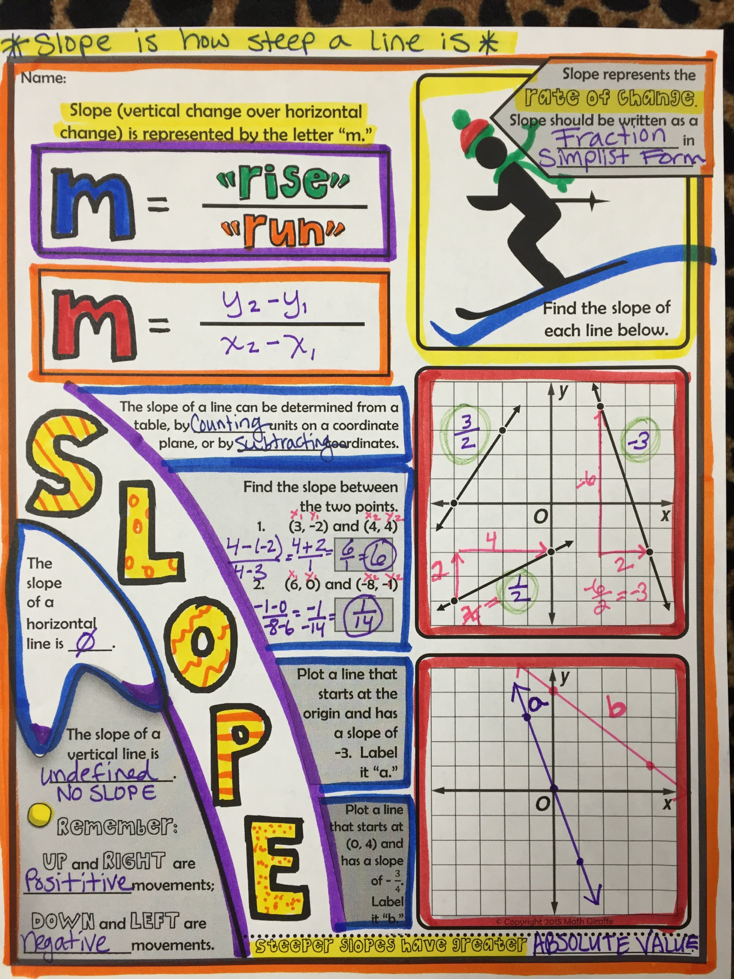 *Slope is how steep a line is*
Name:
Slope (vertical change over horizontal
change) is represented by the letter “m.”
m = “rise”
“run”
m = y₂ - y₁
x₂ - x₁
Slope represents the
rate of change.
Slope should be written as a
Fraction in
Simplist Form
Find the slope of
each line below.
The slope of a line can be determined from a
table, by Counting units on a coordinate
plane, or by Subtracting coordinates.
Find the slope between
the two points.
x₁ y₁ x₂ y₂
1. (3, -2) and (4, 4)
4-(-2)/4-3 = 4+2/1 = 6/1 = 6
x₁ y₁ x₂ y₂
2. (6, 0) and (-8, -1)
-1-0/-8-6 = -1/-14 = 1/14
SLOPE
The
slope
of a
horizontal
line is Ø.
The slope of a
vertical line is
undefined.
NO SLOPE
Remember:
UP and RIGHT are
Posititive movements;
DOWN and LEFT are
negative movements.
Plot a line that
starts at the
origin and has
a slope of
-3. Label
it “a.”
Plot a line
that starts at
(0, 4) and
has a slope
of -3/4.
Label
it “b.”
y
3/2
-3
-6
O
x
4
2
2
2/4 = 1/2
-6/2 = -3
y
a
b
O
x
© Copyright 2015 Math Giraffe
Steeper slopes have greater ABSOLUTE VALUE